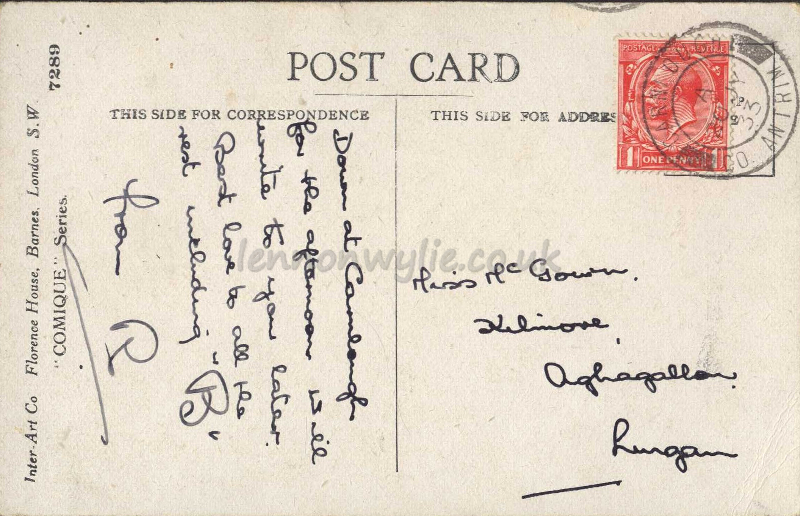 POST CARD
THIS SIDE FOR CORRESPONDENCE
THIS SIDE FOR ADDRESS
Down at Carnlough
for the afternoon will
write to you later.
Best love to all the
rest including "B"
from R
Miss McGown.
Kilmore,
Aghagallon,
Lurgan
POSTAGE REVENUE
1 ONE PENNY 1
CO. ANTRIM
33
Inter-Art Co Florence House, Barnes, London S.W.
"COMIQUE" Series. 7289
lennonwylie.co.uk